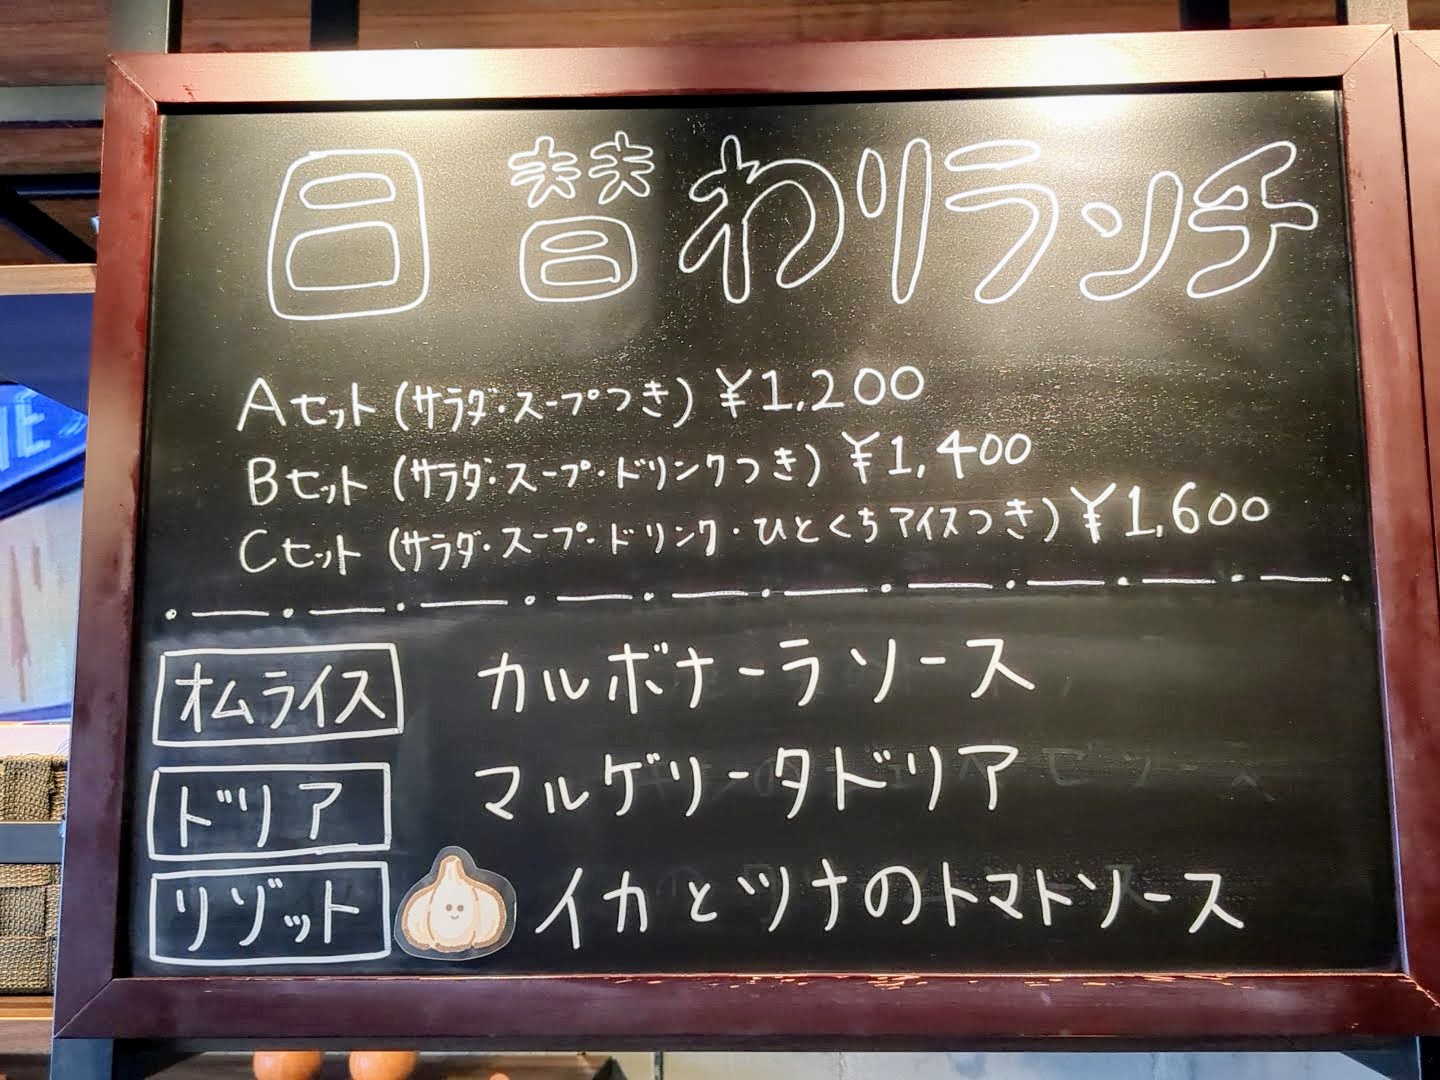 日替わりランチ
Aセット(サラダ・スープつき)¥1,200
Bセット(サラダ・スープ・ドリンクつき)¥1,400
Cセット(サラダ・スープ・ドリンク・ひとくちアイスつき)¥1,600
オムライス カルボナーラソース
ドリア マルゲリータドリア
リゾット イカとツナのトマトソース